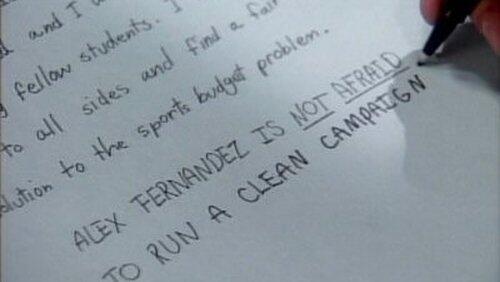 and I
fellow students. I
to all sides and find a fair
solution to the sports budget problem.
ALEX FERNANDEZ IS NOT AFRAID
TO RUN A CLEAN CAMPAIGN